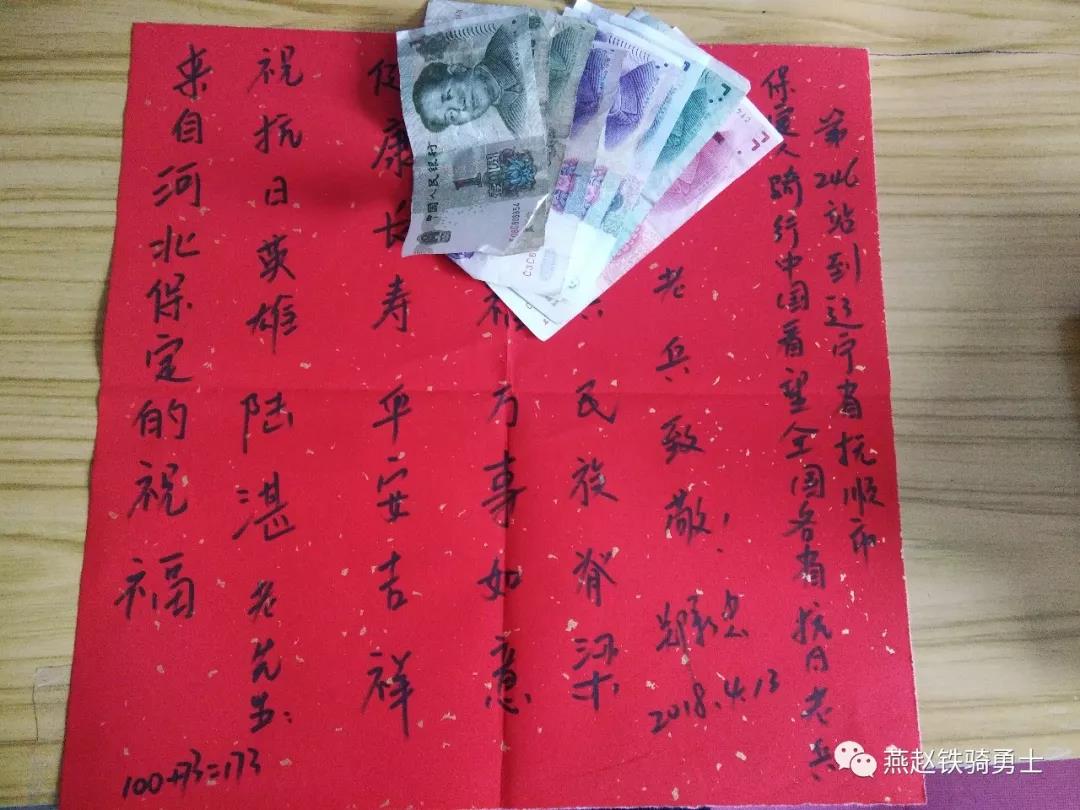 来自河北保定的祝福
祝抗日英雄陆湛老先生:
健康长寿平安吉祥
万事如意
民族脊梁
老兵致敬!
2018.4.13
保定人骑行中国看望全国各省抗日老兵
第246站到辽宁省抚顺市
100+73=173
中国人民银行
1
燕赵铁骑勇士